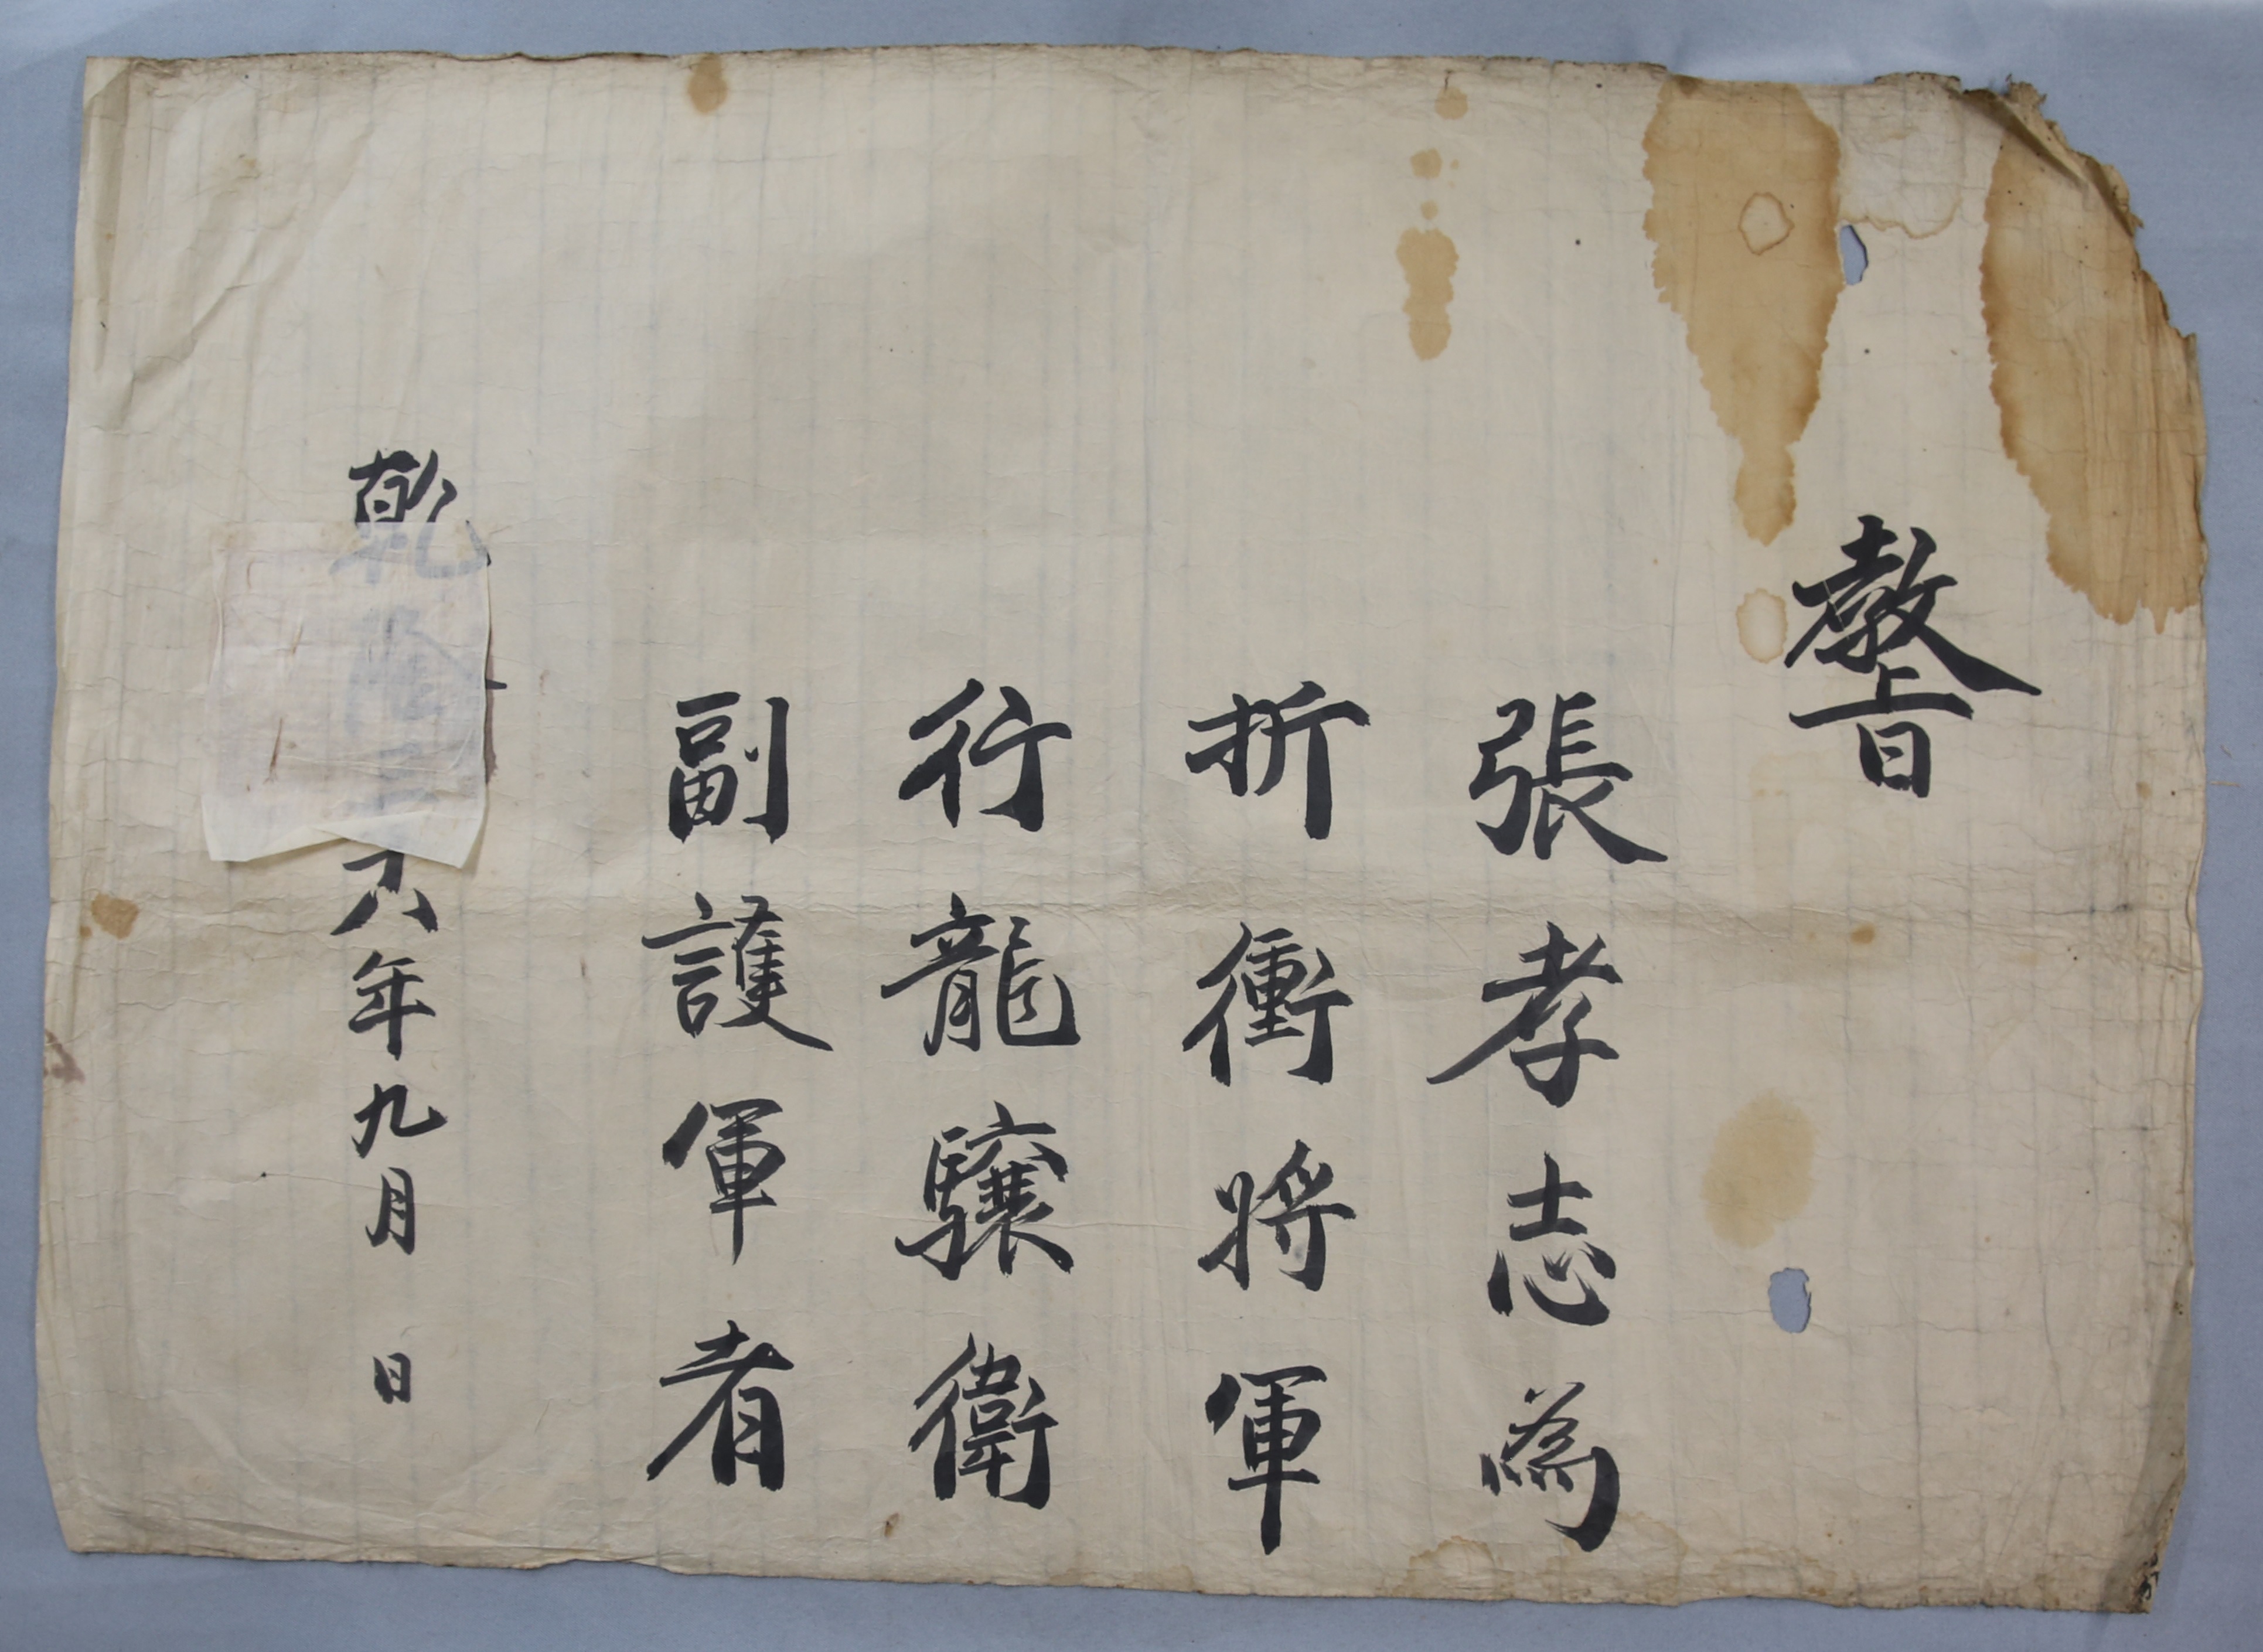 敎旨
張孝志為
折衝將軍
行龍驤衛
副護軍者
乾隆 年九月 日